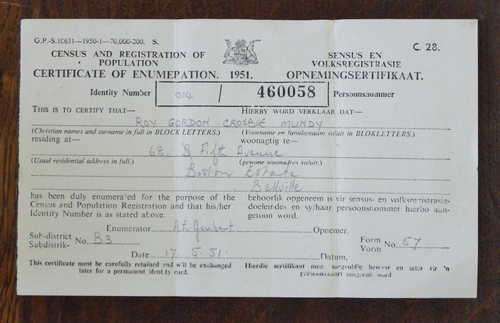 G.P.-S.10631—1950-1—70,000-200. S.
C. 28.
CENSUS AND REGISTRATION OF POPULATION
SENSUS EN VOLKSREGISTRASIE
CERTIFICATE OF ENUMERATION. 1951. OPNEMINGSERTIFIKAAT.
Identity Number 014 / 460058 Persoonsnommer
THIS IS TO CERTIFY THAT— HIERBY WORD VERKLAAR DAT—
ROY GORDON CROSBIE MUNDY
(Christian names and surname in full in BLOCK LETTERS.) (Voorname en familienaam voluit in BLOKLETTERS.)
residing at— woonagtig te—
Fifth Avenue
(Usual residential address in full.) (gewone woonadres voluit.)
Boston Estate
Bellville
has been duly enumerated for the purpose of the behoorlik opgeneem is vir sensus- en volksregistrasie-
Census and Population Registration and that his/her doeleindes en sy/haar persoonsnommer hierbo aan-
Identity Number is as stated above. getoon word.
Enumerator Opnemer.
Sub-district
Subdistrik- No. B3
Form
Vorm No. 57
Date 17. 5. 51. Datum,
This certificate must be carefully retained and will be exchanged Hierdie sertifikaat moet sorgvuldig bewaar en sal vir 'n
later for a permanent identity card. persoonskaart omgeruil word